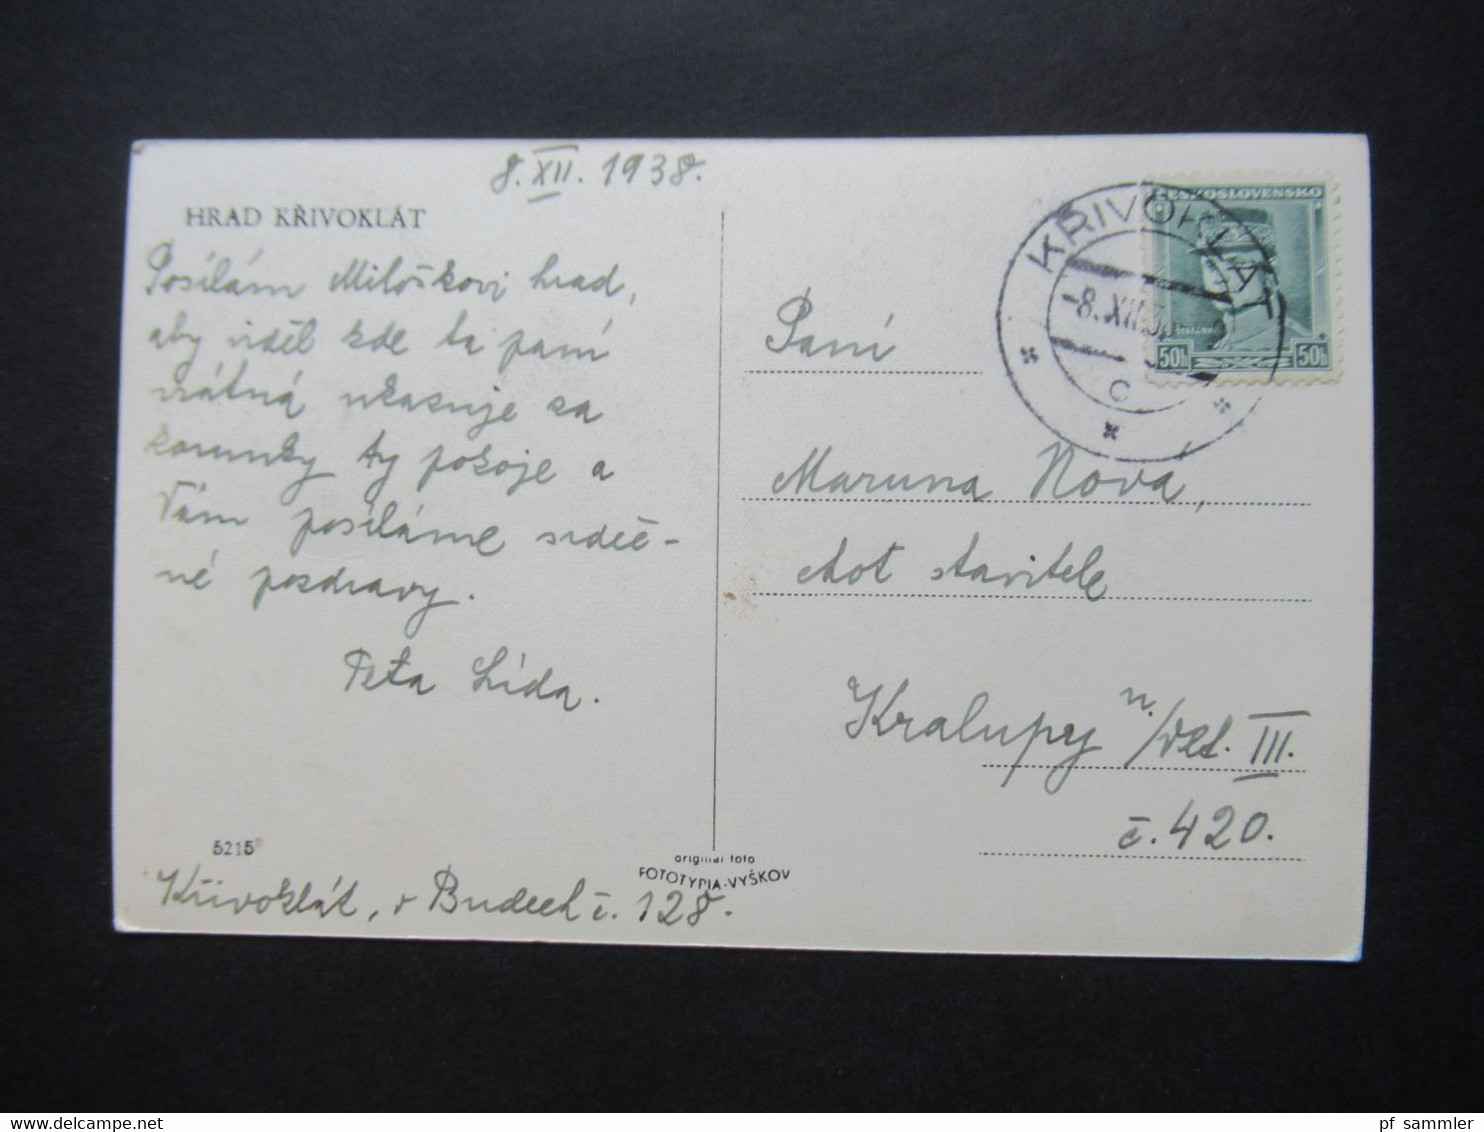 8. XII. 1938.
HRAD KŘIVOKLÁT
Posílám Miloškovi hrad,
aby viděl kde ta paní
vrátná ukazuje za
korunky ty pokoje a
Vám posíláme srdeč-
né pozdravy.
Teta Lída.
5215
original foto
FOTOTYPIA-VYŠKOV
Křivoklát, v Budech č. 128.
ČESKOSLOVENSKO
50h 50h
KŘIVOKLÁT
-8.XII.38
C
Paní
Maruna Nová,
stavitele
Kralupy n./Vlt. III.
č. 420.
pf_sammler